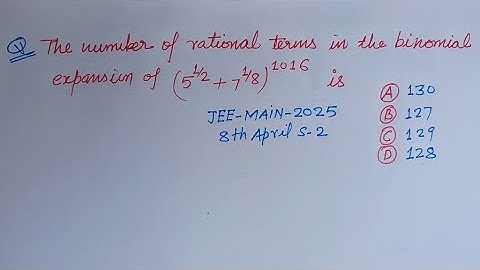 Q The number of rational terms in the binomial
expansion of (5^1/2 + 7^1/8)^1016 is
JEE-MAIN-2025
8th April S-2
A 130
B 127
C 129
D 128